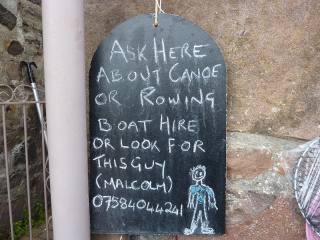 ASK HERE
ABOUT CANOE
OR ROWING
BOAT HIRE
OR LOOK FOR
THIS GUY
(MALCOLM)
07584044241